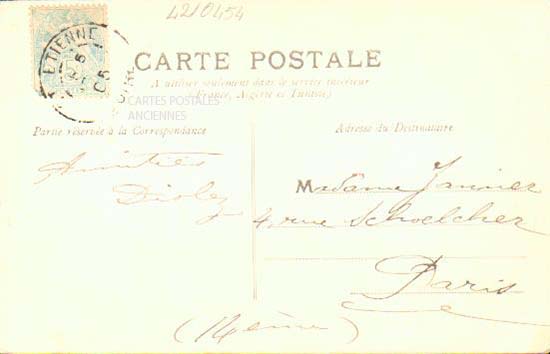 4210454
ETIENNE
CARTE POSTALE
A utiliser seulement dans le service intérieur
(France, Algérie et Tunisie)
CARTES POSTALES
ANCIENNES
Partie réservée à la Correspondance
Adresse du Destinataire
Amitiés
Diolez
Madame Jannier
4, rue Schoelcher
Paris
(14ème)